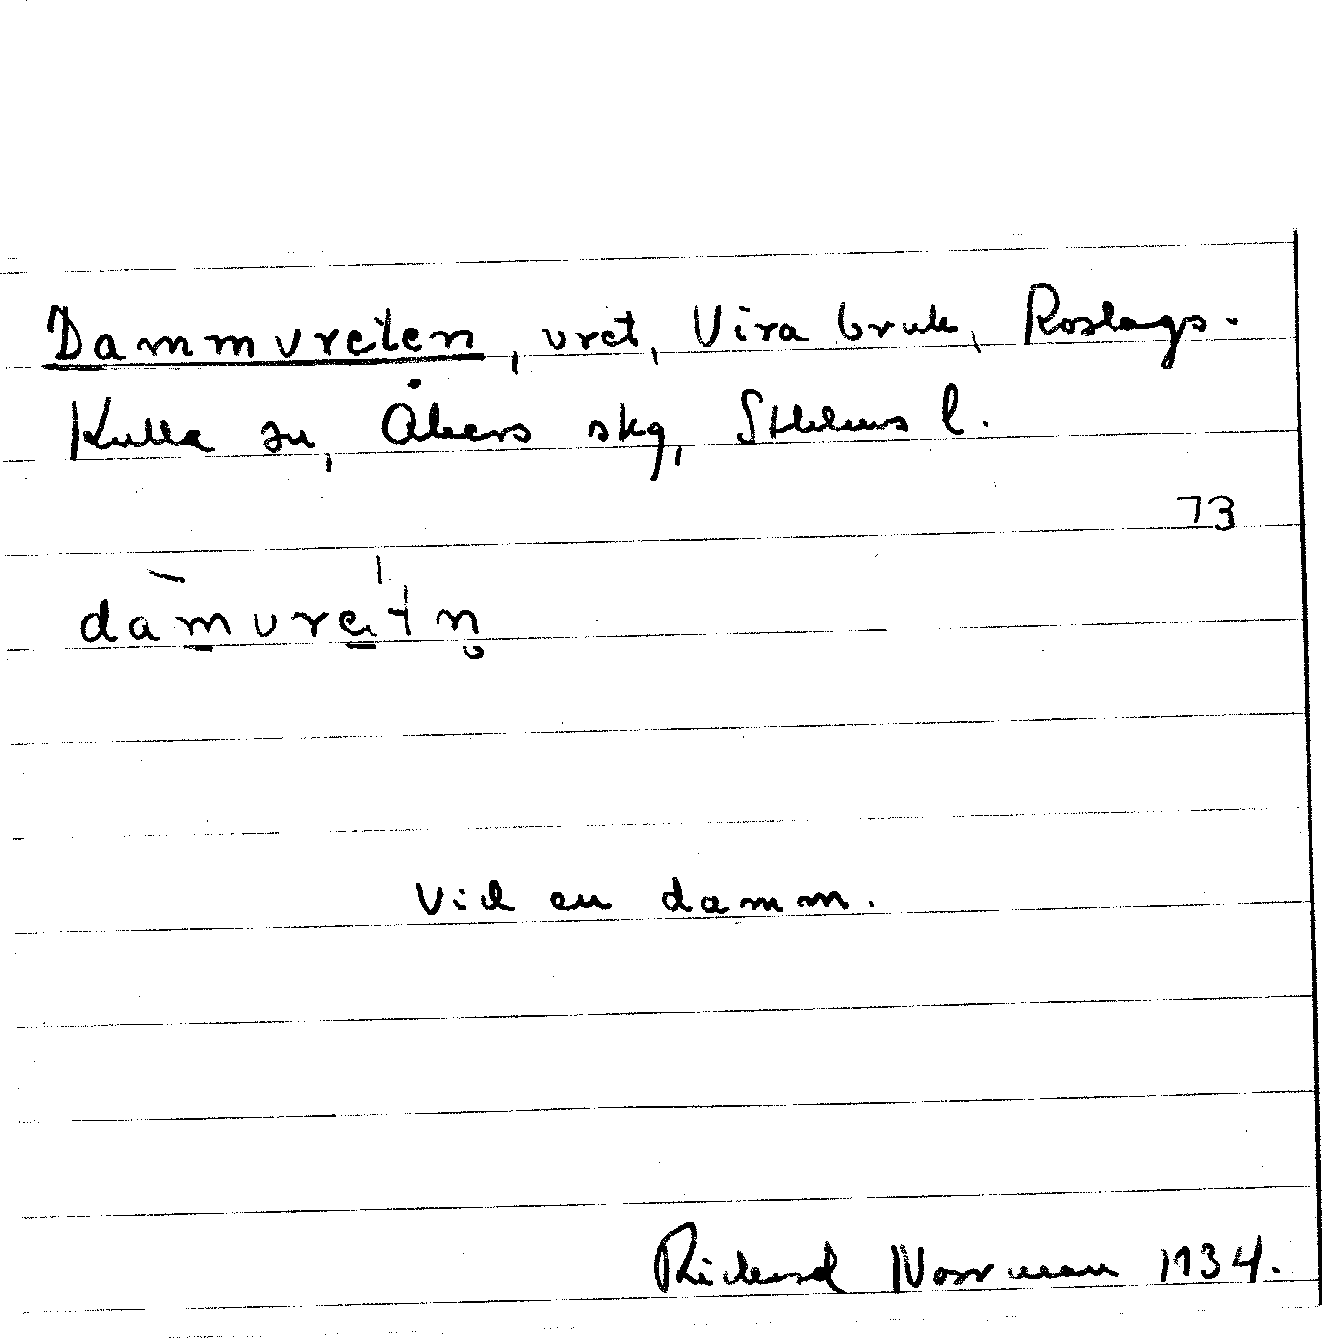 Dammvreten, vret, Vira bruk, Roslags-
Kulla sn, Åkers skg, Sthlms l.
73
dàm̠vre̠ˈtn̥
Vid en damm.
Rickard Norrman 1934.